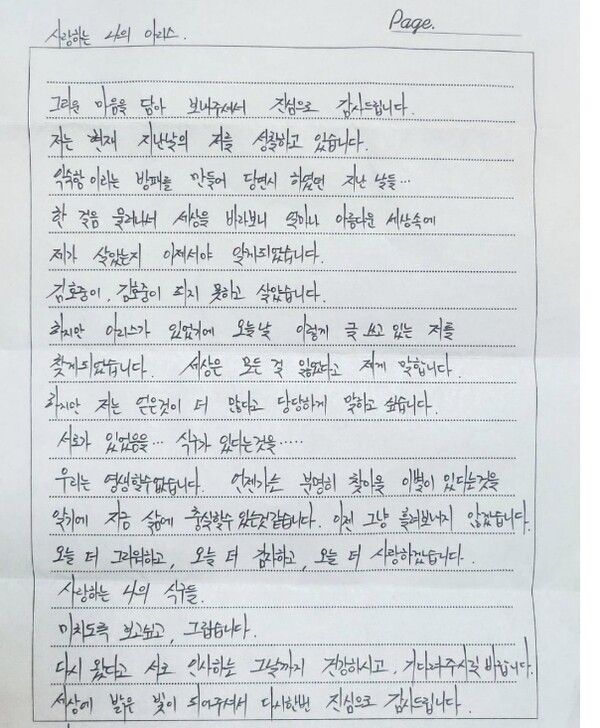 Page.
사랑하는 나의 아리스.
그리운 마음을 담아 보내주셔서 진심으로 감사드립니다.
저는 현재 지난날의 저를 성찰하고 있습니다.
익숙함이라는 방패를 만들어 당연시 하였던 지난 날들...
한 걸음 물러나서 세상을 바라보니 얼마나 아름다운 세상속에
제가 살았는지 이제서야 알게되었습니다.
김호중이, 김호중이 되지 못하고 살았습니다.
하지만 아리스가 있었기에 오늘날 이렇게 글 쓰고 있는 저를
찾게되었습니다. 세상은 모든 걸 잃었다고 제게 말합니다.
하지만 저는 얻은것이 더 많다고 당당하게 말하고 싶습니다.
서로가 있었음을... 식구가 있다는것을.....
우리는 영생할수없습니다. 언젠가는 분명히 찾아올 이별이 있다는것을
알기에 지금 삶에 충실할수 있는것같습니다. 이젠 그냥 흘려보내지 않겠습니다.
오늘 더 그리워하고, 오늘 더 감사하고, 오늘 더 사랑하겠습니다.
사랑하는 나의 식구들.
미치도록 보고싶고, 그립습니다.
다시 왔다고 서로 인사하는 그날까지 건강하시고, 기다려주시길 바랍니다.
세상에 밝은 빛이 되어주셔서 다시한번 진심으로 감사드립니다.